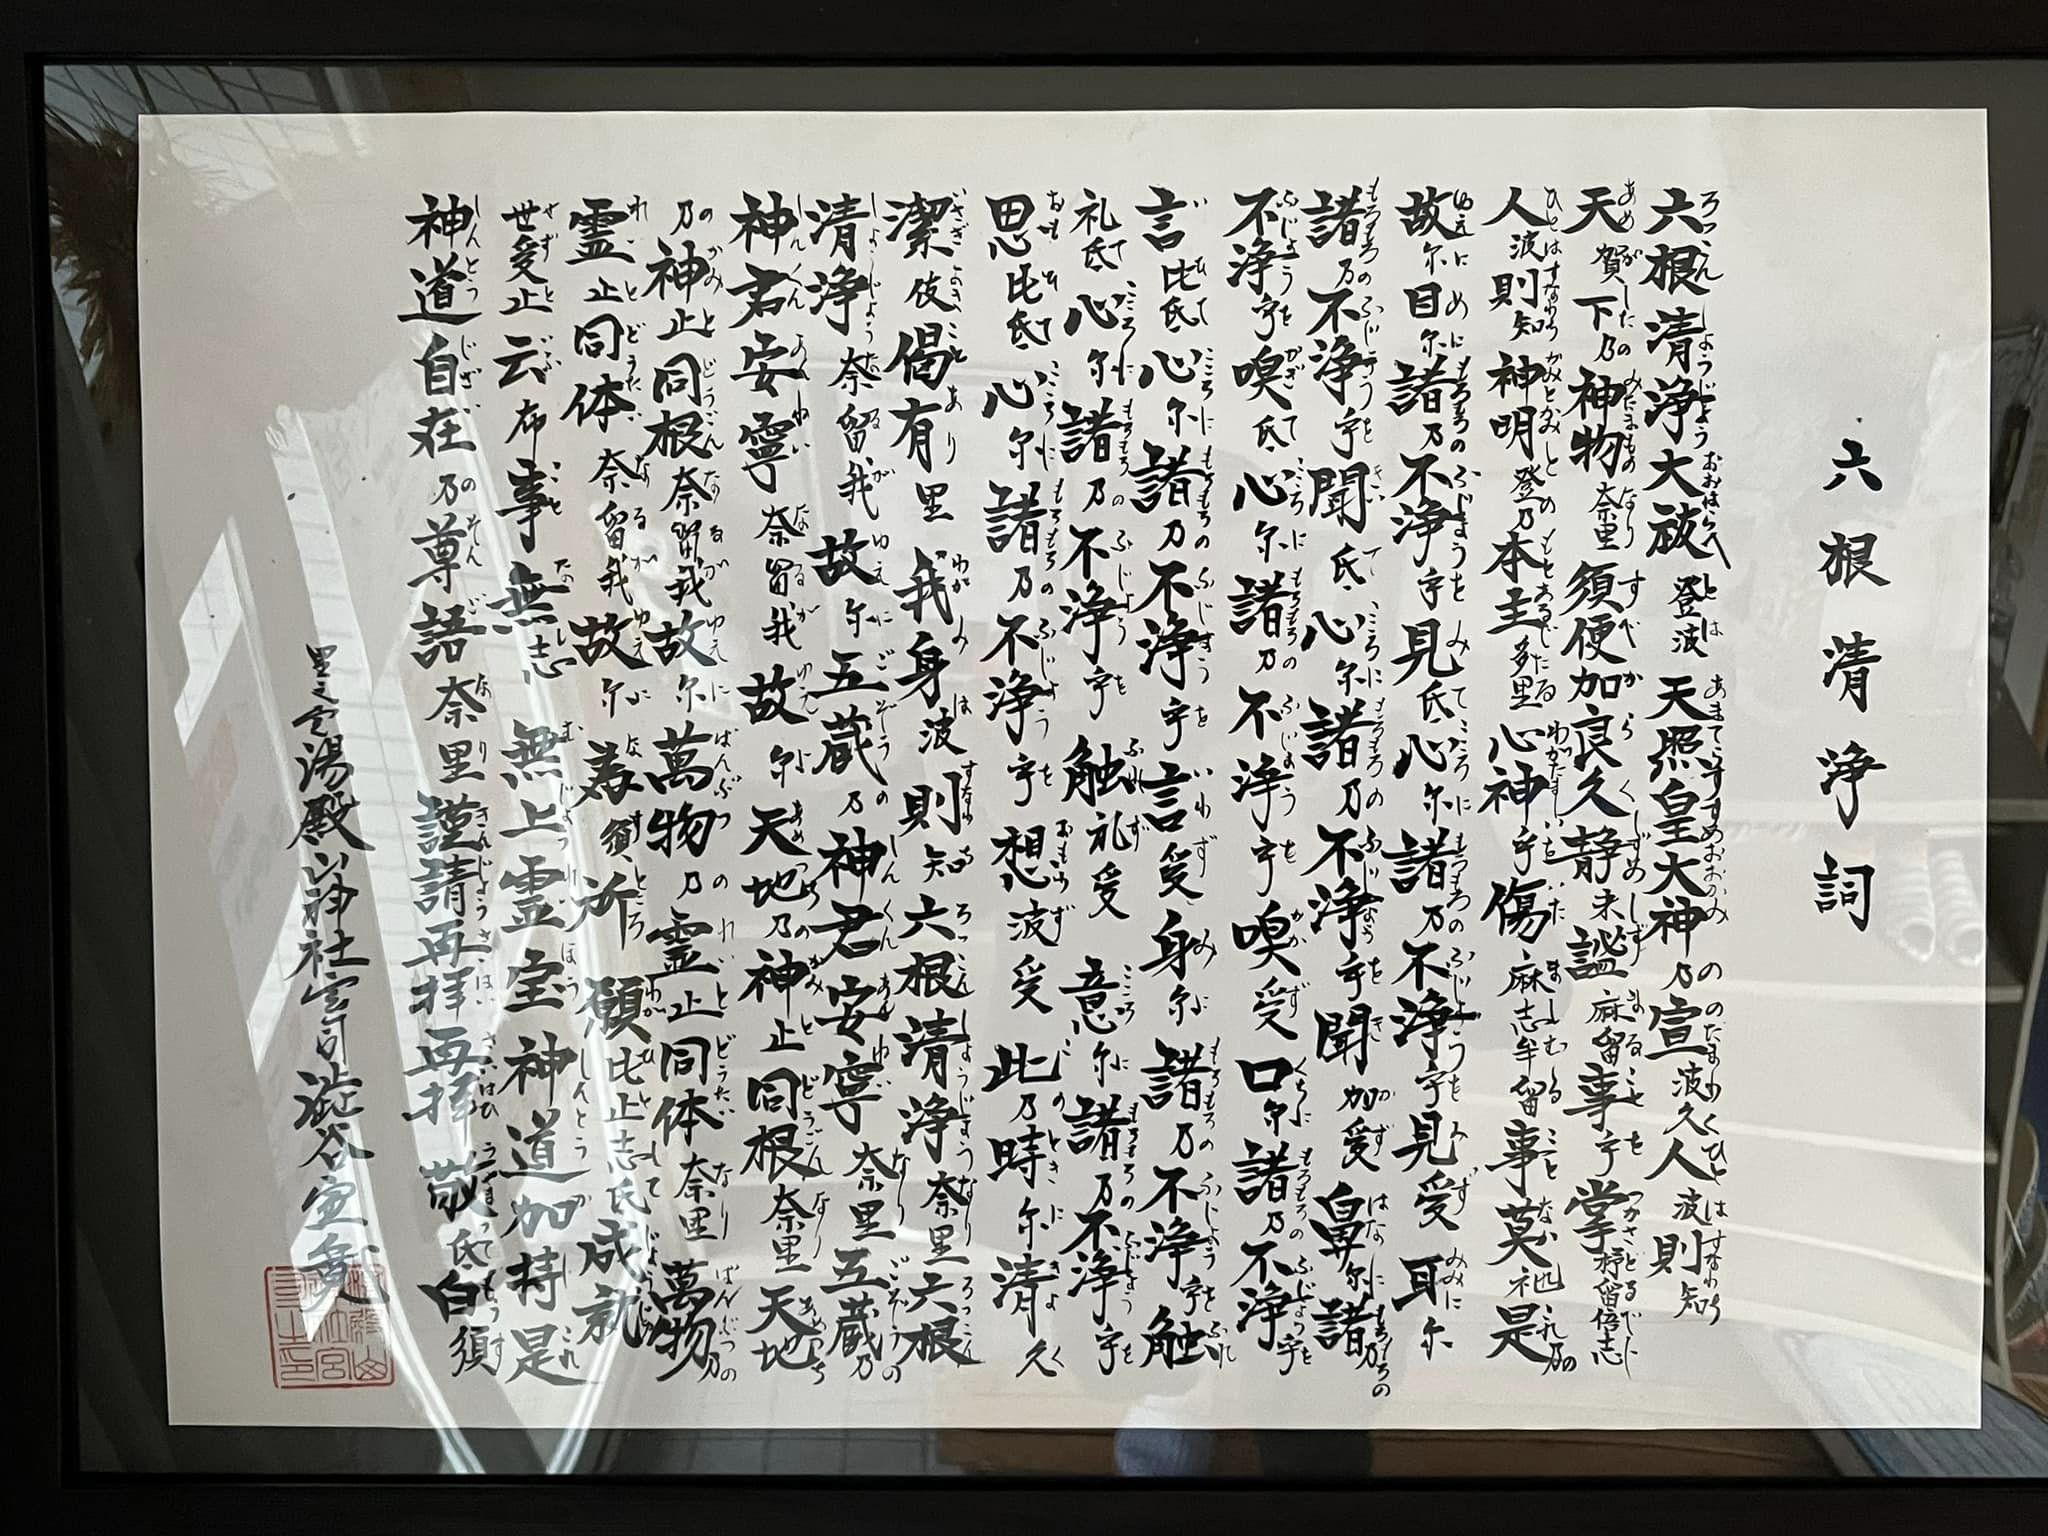 六根清浄詞
六根清浄大祓登波天照皇大神乃宣波久人波則知
天賀下乃神物奈里須便加良久静未謐麻留事乎掌
人波則知神明登乃本主多里心神乎傷麻志牟留事莫礼是乃
故尓目尓諸乃不浄乎見氐心尓諸乃不浄乎見受耳尓
諸乃不浄乎聞氐心尓諸乃不浄乎聞加受鼻尓諸乃
不浄乎嗅氐心尓諸乃不浄乎嗅受口尓諸乃不浄乎
言比氐心尓諸乃不浄乎言受身尓諸乃不浄乎触
礼氐心尓諸乃不浄乎触礼受意尓諸乃不浄乎
思比氐心尓諸乃不浄乎想波受此乃時尓清久
潔伎偈有里我身波則知六根清浄奈里六根
清浄奈留我故尓五蔵乃神君安寧奈里五蔵乃
神君安寧奈留我故尓天地乃神止同根奈里天地
乃神止同根奈留我故尓萬物乃霊止同体奈里萬物乃
霊止同体奈留我故尓為須所願比止志氐成就
世受止云布事無志無上霊宝神道加持是
神道自在乃尊語奈里謹請再拝再拝敬氐白須
湯殿山神社宮司澁谷宣寛